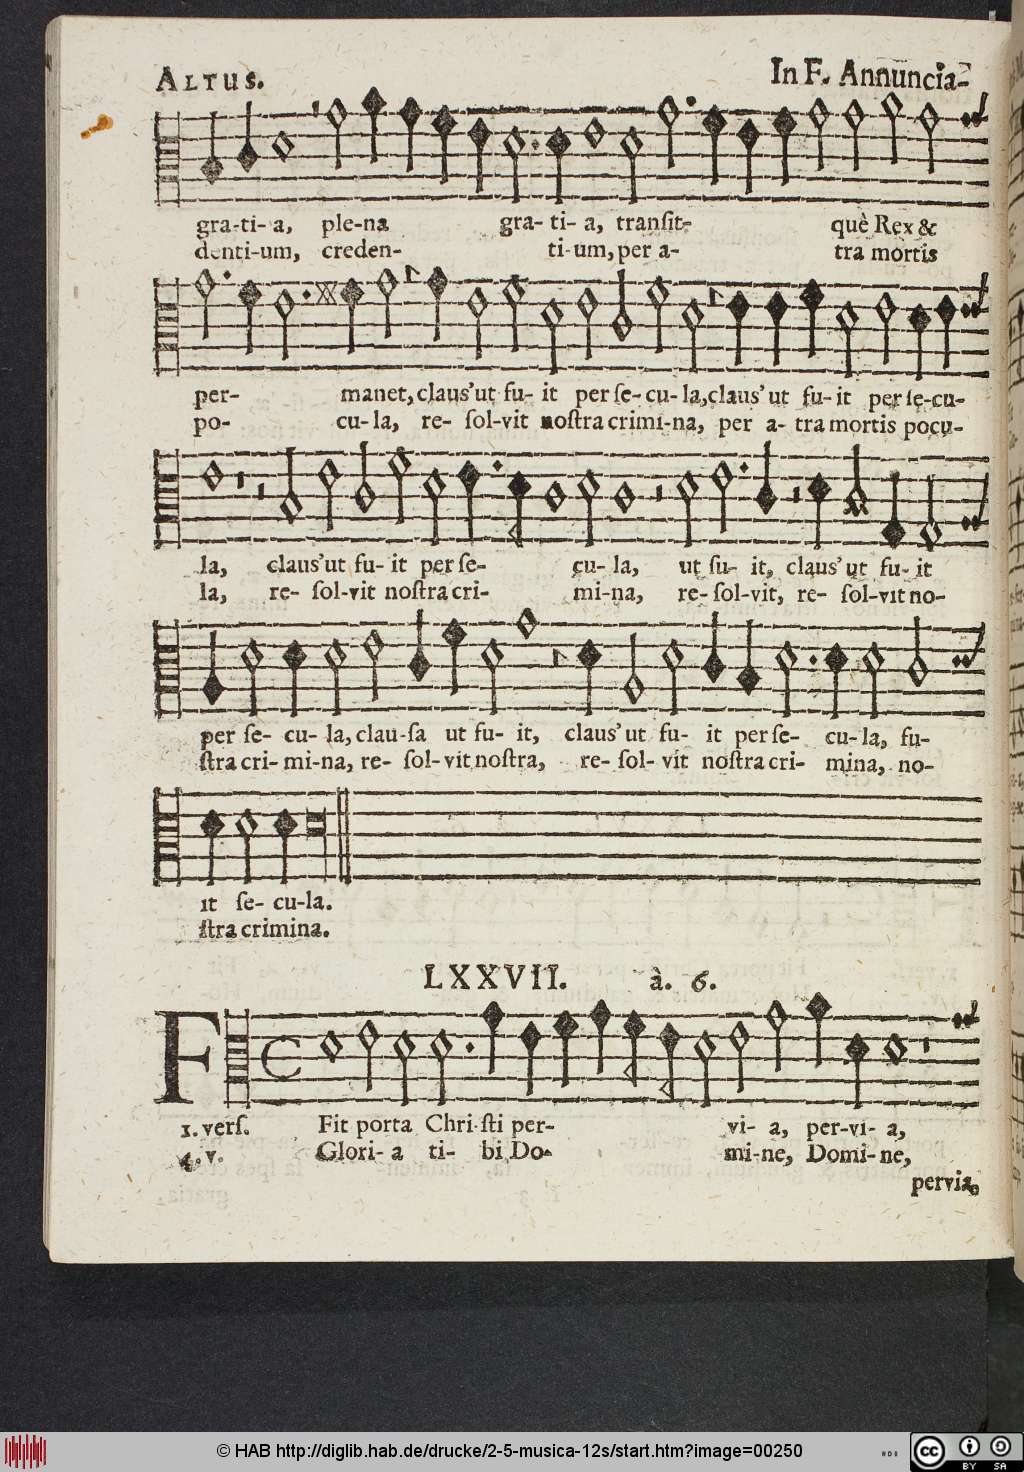 ALTUS.
In F. Annuncia-
gra-ti- a, ple-na gra- ti- a, tranſit- què Rex &
denti-um, creden- ti-um, per a- tra mortis
per- manet, claus'ut fu- it per ſe- cu- la, claus' ut fu- it per ſe-cu-
po- cu- la, re- ſol-vit noſtra crimi-na, per a- tra mortis pocu-
la, claus'ut fu- it per ſe- cu- la, ut fu- it, claus' ut fu- it
la, re- ſol-vit noſtra cri- mi-na, re- ſol-vit, re- ſol-vit no-
per ſe- cu- la, clau-ſa ut fu- it, claus' ut fu- it per ſe- cu- la, fu-
ſtra cri- mi-na, re- ſol-vit noſtra, re- ſol- vit noſtra cri- mina, no-
it ſe- cu-la.
ſtra crimina.
LXXVII. à. 6.
F
1. verſ. Fit porta Chri-ſti per- vi- a, per-vi- a,
4. v. Glori- a ti- bi Do- mi-ne, Domi-ne,
pervia,
© HAB http://diglib.hab.de/drucke/2-5-musica-12s/start.htm?image=00250
cc BY SA